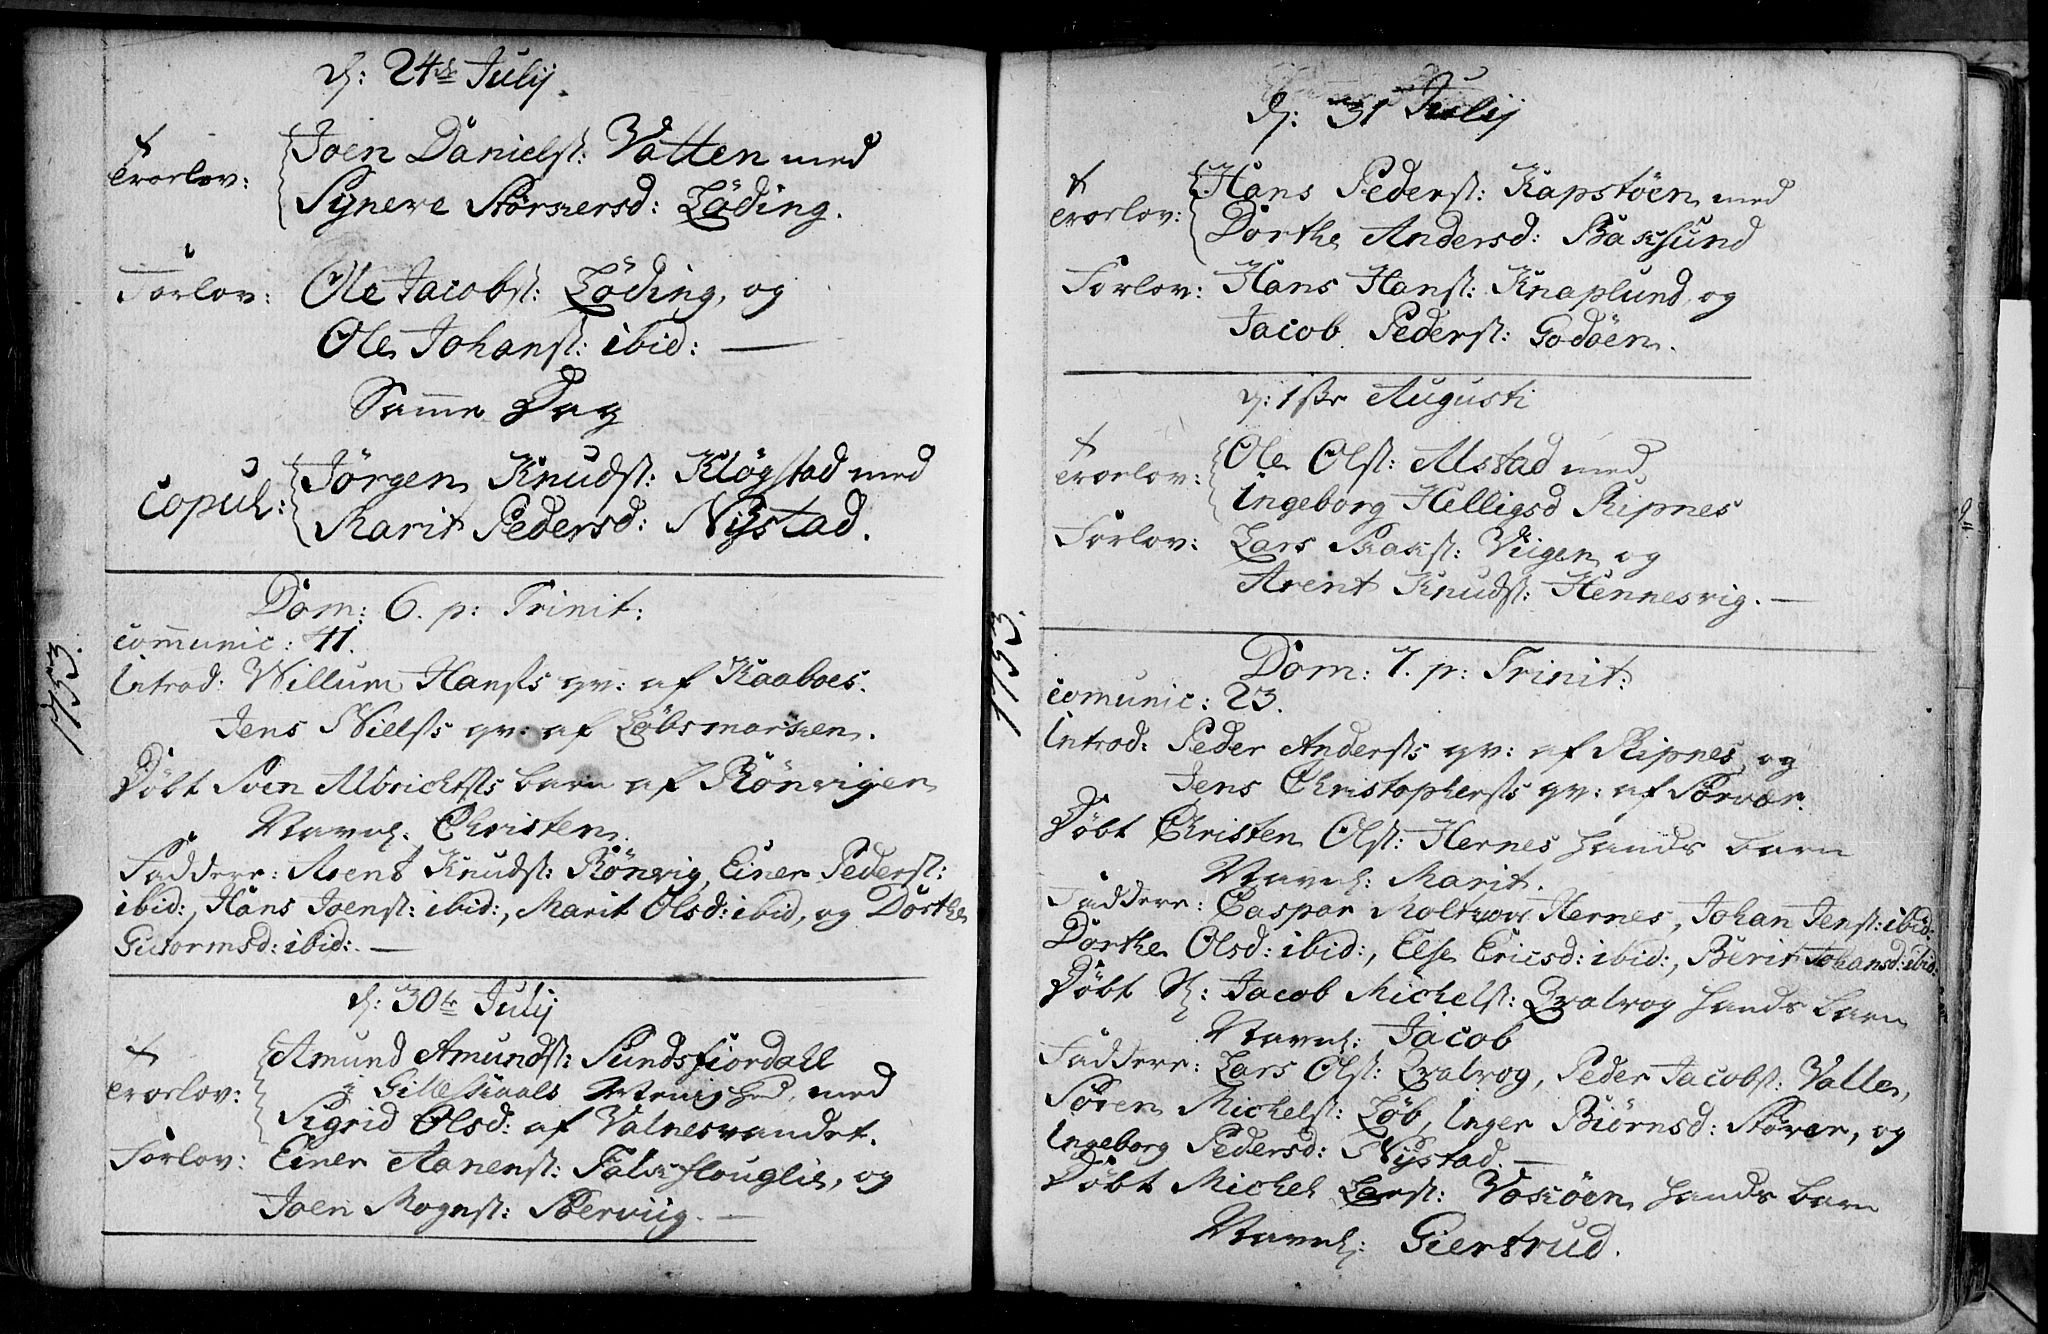 d: 24de Julij.
†
Trorlov: Joen Danielst: Vatten med
Synere Størkersd: Løding.
Forlov: Ole Jacobst: Løding, og
Ole Johanst: ibid: —
Samme Dag
Copul: Jørgen Knudst: Kløgstad med
Marit Pedersd: Nystad.
1753.
Dom: 6. p: Trinit:
Communic: 41.
Introd: Willum Hansts qv: af Kaaboes.
Jens Nielsts qv: af Løbsmarken.
Døbt Sven Albrichtsts barn af Rønvigen
Navnl: Christen.
Faddere: Arent Knudst: Rønvig, Einer Pederst:
ibid:, Hans Joenst: ibid:, Marit Olsd: ibid, og Dorthe
Guttormsd: ibid: —
d: 30te Julij
†
Trorlov: Amund Amundst: Sundsfiordall
i Gilleskaals Menighed, med
Sigrid Olsd: af Valnesvandet.
Forlov: Einer Aanenst: Falkflouglie, og
Joen Mognst: Skervig. —
d: 31 Julij
†
Trorlov: Hans Pederst: Kapstøen med
Dorthe Andersd: Baksund
Forlov: Hans Hanst: Knaplund, og
Jacob Pederst: Godøen.
d: 1ste Augusti
†
Trorlov: Ole Olst: Alstad med
Ingeborg Helligsd Ripnes
Forlov: Lars Isakst: Viigen og
Arent Knudst: Hennesvig. —
1753.
Dom: 7. p: Trinit:
Comunic: 23.
Introd: Peder Andersts qv: af Ripnes, og
Jens Christophersts qv: af Sørvær.
Døbt Christen Olst: Hernes hands barn
Navnl: Marit.
Faddere: Caspar Moltzow Hernes, Johan Jenst: ibid:
Dorthe Olsd: ibid:, Else Ericsd: ibid:, Berit Johansd: ibid:
Døbt Jacob Michelst: Qvalvog hands barn
Navnl: Jacob
Faddere: Lars Olst: Qvalvog, Peder Jacobst: Valle,
Søren Michelst: Løb, Inger Biørnsd: Støver, og
Ingeborg Pedersd: Nystad. —
Døbt Michel Larst: Voskøen hands barn
Navnl: Giertrud.